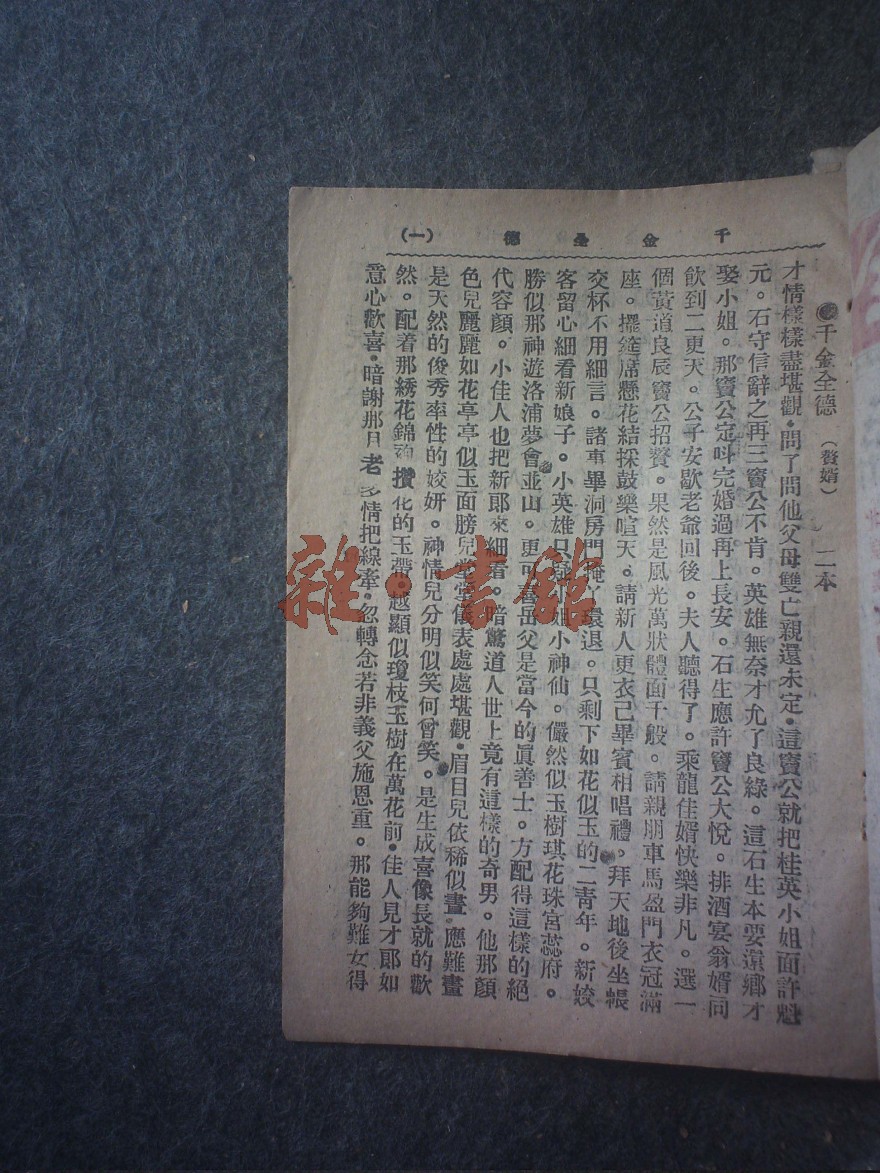 千金全德 (一)
●千金全德 (贅婿) 二本
才情樣樣盡堪觀。問了問他父母雙亡親還未定。這竇公就把桂英小姐面許魁
元。石守信辭之再三竇公不肯。英雄無奈才允了良緣。這石生本要還鄉才
娶小姐。那竇公定呌完婚過再上長安。石生應許竇公大悅。排酒宴翁婿同
飲到二更天。公子安歇老爺回後。夫人聽得了。乘龍佳婿快樂非凡。選一
個黃道良辰竇公招贅。果然是風光萬狀體面千般。請親朋車馬盈門衣冠滿
座。擺筵席懸花結採鼓樂喧天。請新人更衣已畢賓相唱禮。拜天地後坐帳
交杯不用細言。諸事畢洞房門掩丫環退。只剩下如花似玉的二青年。新姣
客留心細看新娘子。小英雄只疑小姐小神仙。儼然似玉樹琪花珠宮蕊府。
勝似那神遊洛浦夢會並山。更可喜岳父是當今的眞善士。方配得這樣的絕
代容顏。小佳人也把新郎來細看。暗驚道人世上竟有這樣的奇男。他那顏
色兒麗麗如花亭亭似玉面膀兒堂堂儀表處處堪觀。眉目兒依稀似畫應難畫
是天然的俊秀率性的姣妍。神情兒分明似笑何曾笑。是生成喜像長就的歡
然。配着那綉花錦 攢花的玉帶。越顯似瓊枝玉樹在萬花前。佳人見才郎如
意心歡喜。暗謝那月老多情把線牽。忽轉念若非義父施恩重。那能夠難女得
雜·書館